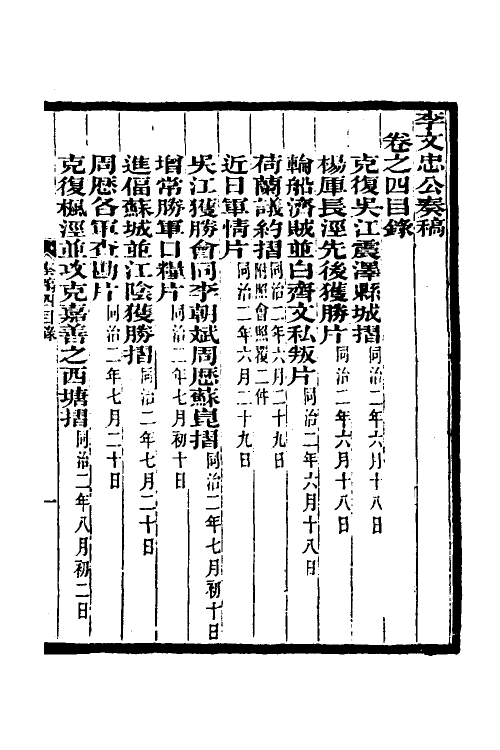 李文忠公奏稿
卷之四目錄
克復吳江震澤縣城摺同治二年六月十八日
楊庫長涇先後獲勝片同治二年六月十八日
輪船濟賊並白齊文私叛片同治二年六月十八日
荷蘭議約摺附照會照覆二件同治二年六月二十九日
近日軍情片同治二年六月二十九日
吳江獲勝會同李朝斌周歷蘇崑摺同治二年七月初十日
增常勝軍口糧片同治二年七月初十日
進偪蘇城並江陰獲勝摺同治二年七月二十日
周歷各軍查勘片同治二年七月二十日
克復楓涇並攻克嘉善之西塘摺同治二年八月初二日
奏稿四目錄
一